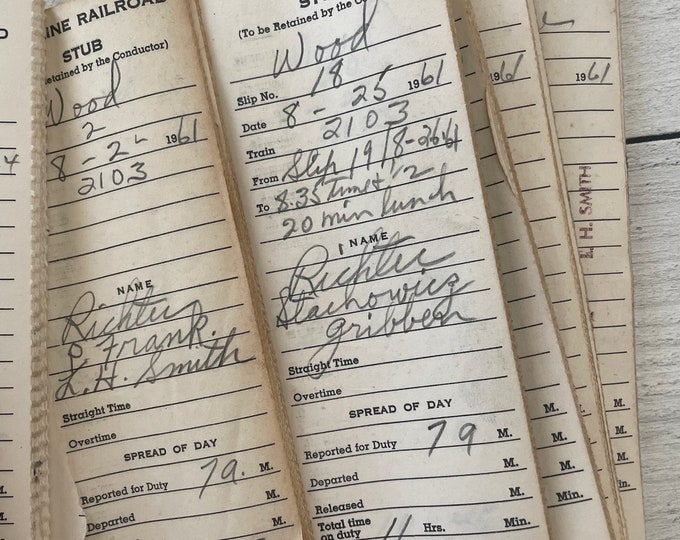 INE RAILROAD
STUB
etained by the Conductor)
Wood
2
8 - 2 - 1961
2103
NAME
Richter
P. Frank.
L. H. Smith
Straight Time
Overtime
SPREAD OF DAY
Reported for Duty 79. M.
Departed M.
STUB
(To be Retained by the Co
Wood
Slip No. 18
Date 8 - 25 1961
Train 2103
From Slip 19 8-26-61
To 8.35 Time + 12
20 min lunch
NAME
Richter
Stachowicz
Gribben
Straight Time
Overtime
SPREAD OF DAY
Reported for Duty 79 M.
Departed M.
Released M.
Total time
on duty 11 Hrs. Min.
1961
M.
M.
M.
Min.
1961
L. H. SMITH
M.
M.
M.
Min.